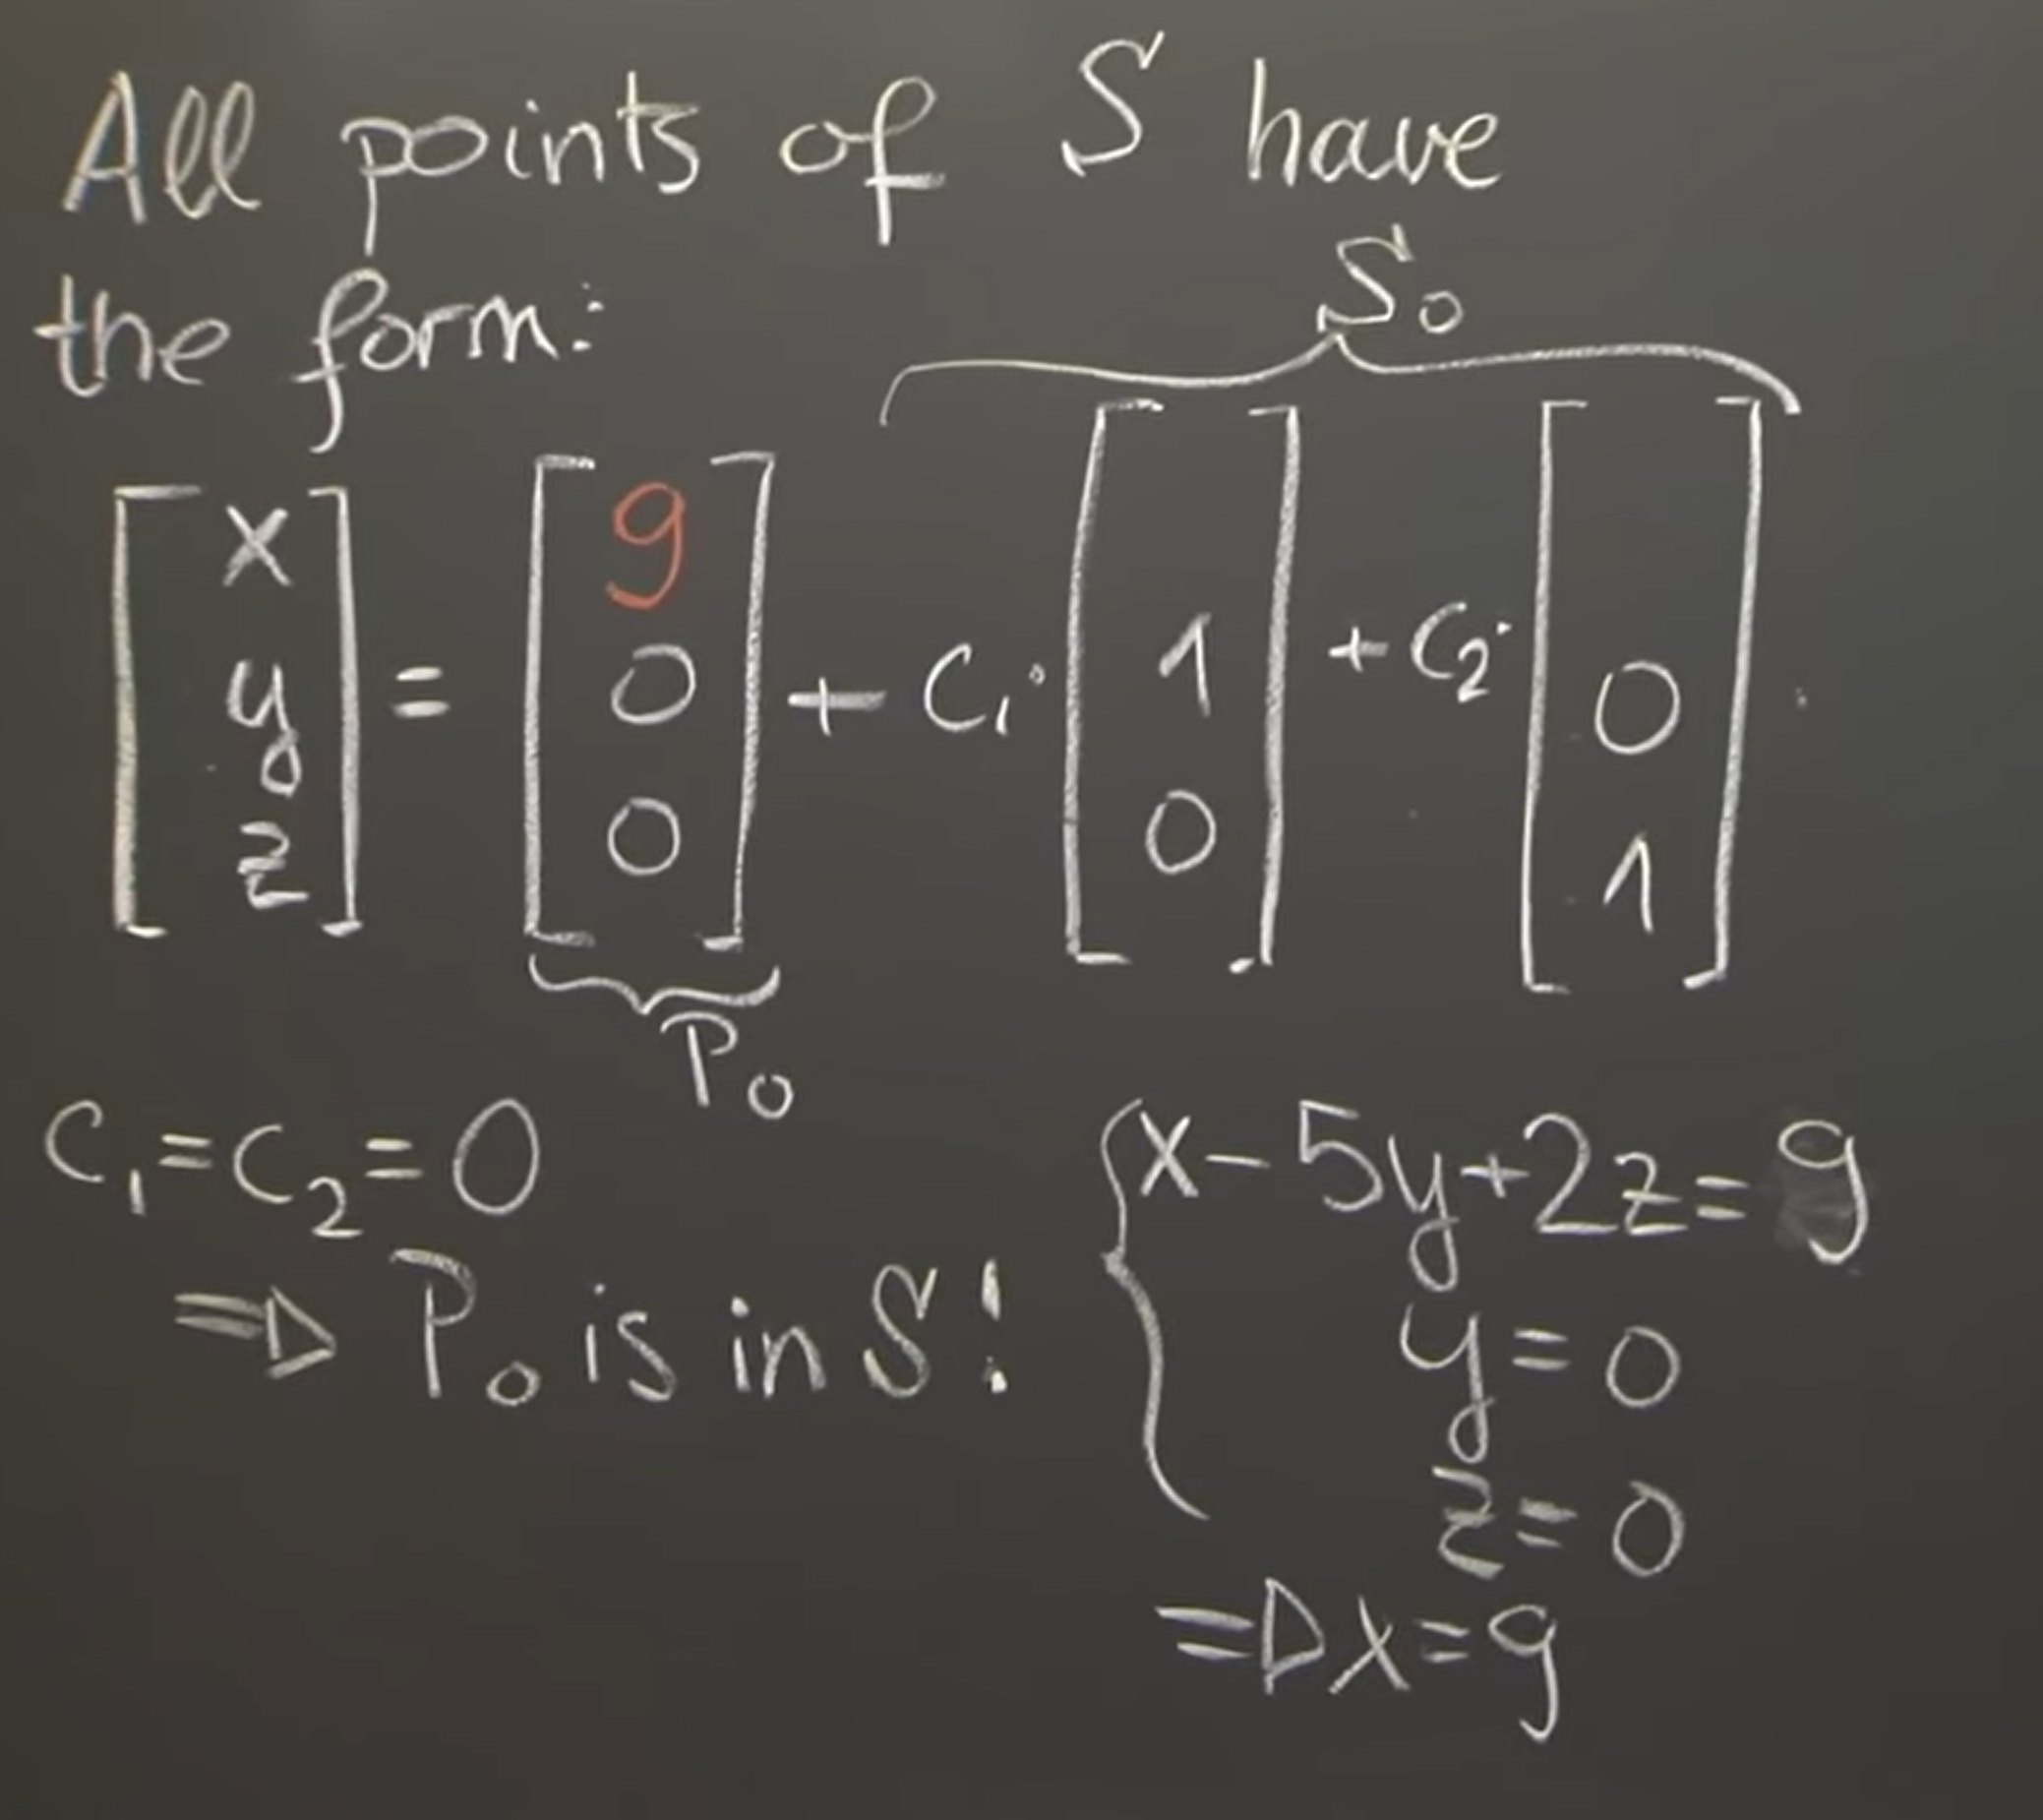 All points of S have
the form:
S₀
[x y z] = [9 0 0] + C₁·[1 0] + C₂·[0 1]
P₀
C₁=C₂=0
⇒ P₀ is in S!
{x-5y+2z=9
y=0
z=0
⇒x=9